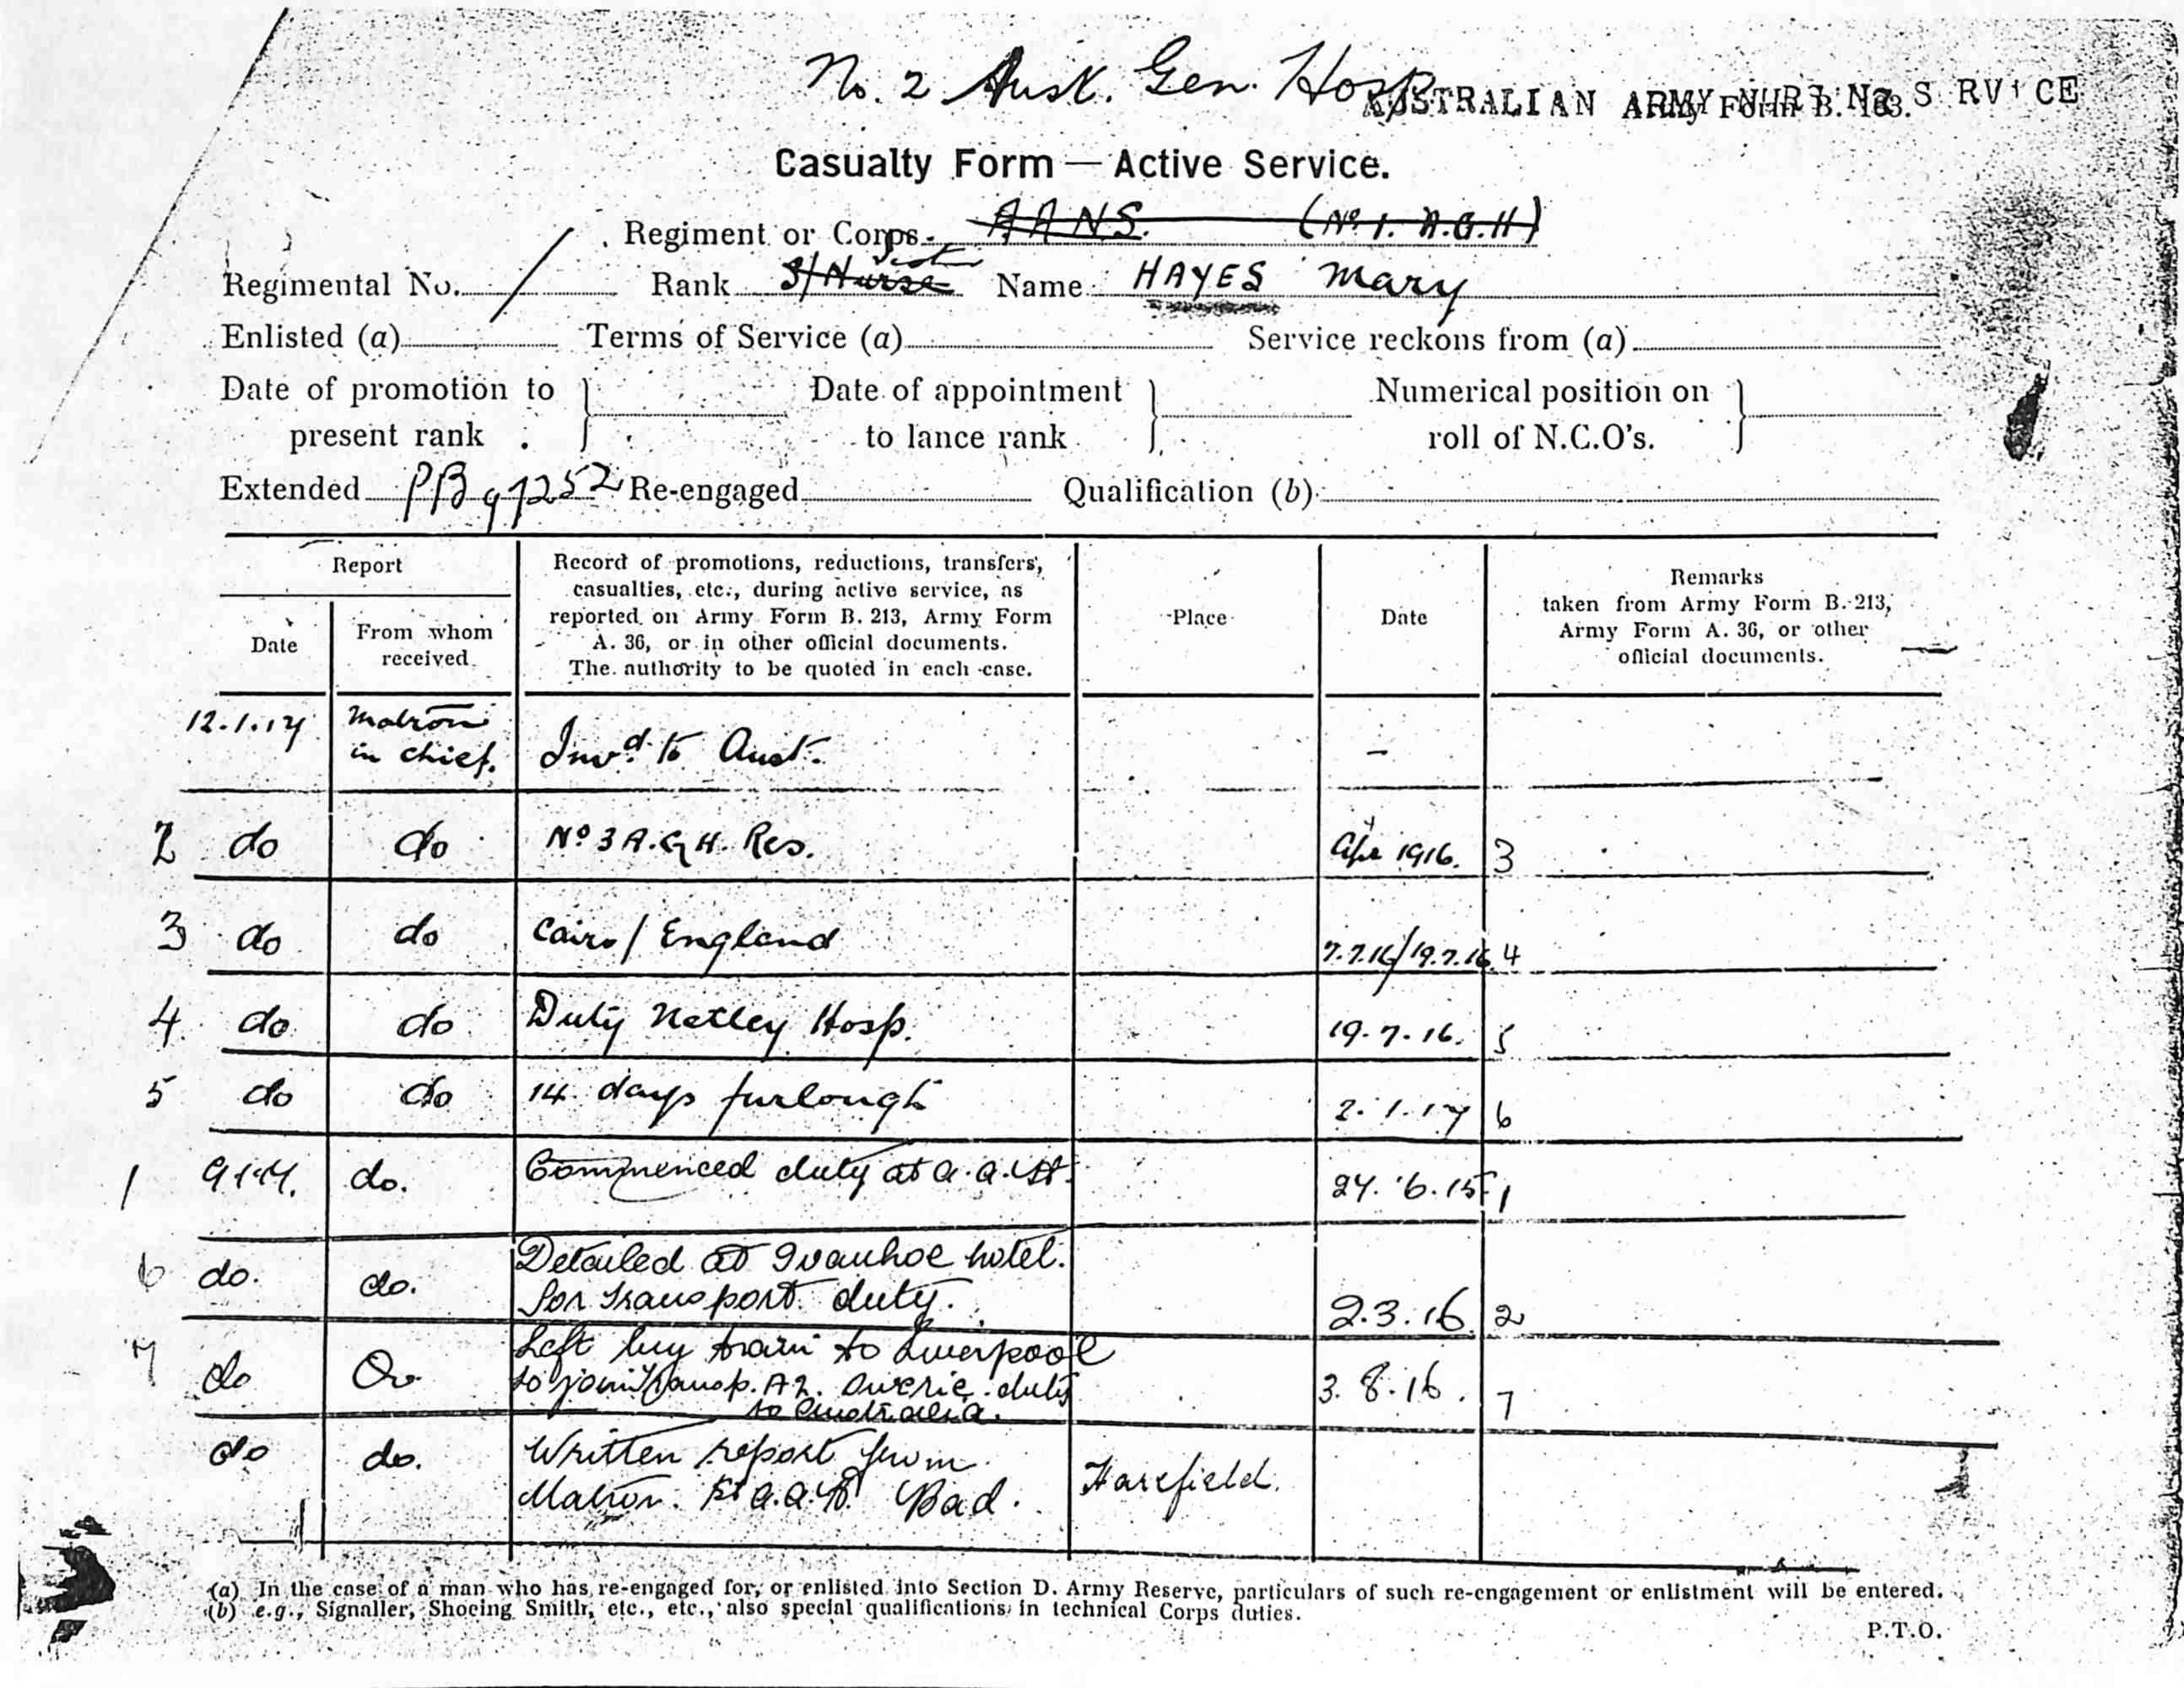 No. 2 Aust. Gen. Hosp
AUSTRALIAN ARMY NURSING S RVICE
Army Form B. 103.
Casualty Form — Active Service.
Regiment or Corps A A N.S. (No 1. A.G.H)
Regimental No. / Rank S/Nurse Sister Name HAYES Mary
Enlisted (a) Terms of Service (a) Service reckons from (a)
Date of promotion to present rank . } Date of appointment to lance rank } Numerical position on roll of N.C.O's. }
Extended PB 97252 Re-engaged Qualification (b)
Report
Date
From whom received.
Record of promotions, reductions, transfers, casualties, etc., during active service, as reported on Army Form B. 213, Army Form A. 36, or in other official documents. The authority to be quoted in each case.
Place
Date
Remarks taken from Army Form B. 213, Army Form A. 36, or other official documents.
12.1.17 Matron in chief. Invd. to Aust. –
2 do do No 3 A.G.H. Res. 1916. 3
3 do do Cairo/England 7.7.16/19.7.16. 4
4 do do Duty Netley Hosp. 19.7.16. 5
5 do do 14 days furlough 2.1.17 6
1 9.1.17. do. Commenced duty at a.a.H. 27.6.15 1
6 do. do. Detailed at Ivanhoe hotel.
for transport duty. 2.3.16. 2
7 do Do Left by train to Liverpool
to join Transp. A2. duty 3.8.16. 7
to Australia.
do do. Written report from
Matron. 1st a.a.H. Bad. Harefield.
(a) In the case of a man who has re-engaged for, or enlisted into Section D. Army Reserve, particulars of such re-engagement or enlistment will be entered.
(b) e.g., Signaller, Shoeing Smith, etc., etc., also special qualifications in technical Corps duties.
P.T.O.